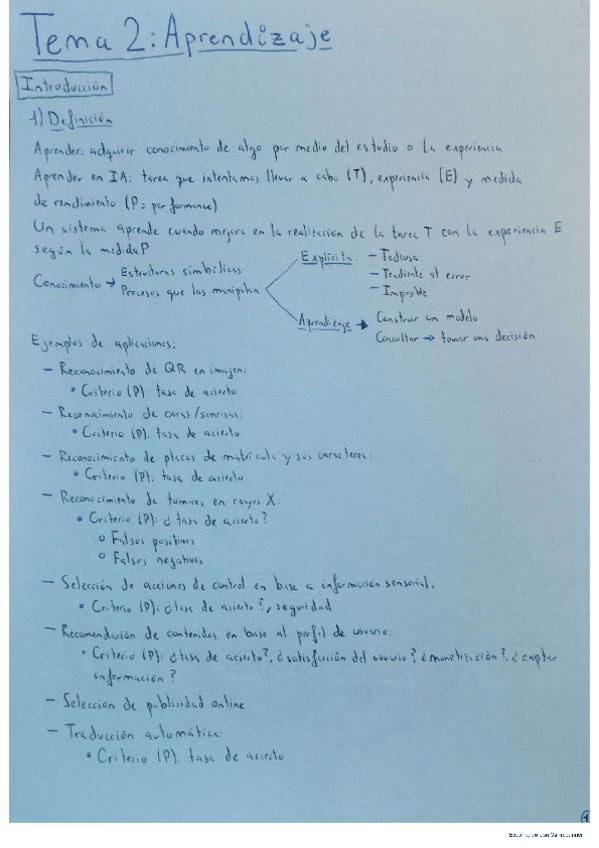 Tema 2: Aprendizaje
Introducción
1) Definición
Aprender: adquirir conocimiento de algo por medio del estudio o la experiencia
Aprender en IA: tarea que intentamos llevar a cabo (T), experiencia (E) y medida
de rendimiento (P = performance)
Un sistema aprende cuando mejora en la realización de la tarea T con la experiencia E
según la medida P
Conocimiento → Estructuras simbólicas
Procesos que las manipulan
Explícita: - Tediosa
- Tendiente al error
- Imposible
Aprendizaje → Construir un modelo
Consultar → tomar una decisión
Ejemplos de aplicaciones:
- Reconocimiento de QR en imagen:
• Criterio (P): tasa de acierto
- Reconocimiento de caras/sonrisas:
• Criterio (P): tasa de acierto
- Reconocimiento de placas de matrícula y sus caracteres:
• Criterio (P): tasa de acierto
- Reconocimiento de tumores en rayos X:
• Criterio (P): ¿tasa de acierto?
○ Falsos positivos
○ Falsos negativos
- Selección de acciones de control en base a información sensorial:
• Criterio (P): ¿tasa de acierto?, seguridad
- Recomendación de contenidos en base al perfil de usuario:
• Criterio (P): ¿tasa de acierto?, ¿satisfacción del usuario? ¿monetización?, ¿captar
información?
- Selección de publicidad online
- Traducción automática:
• Criterio (P): tasa de acierto
1